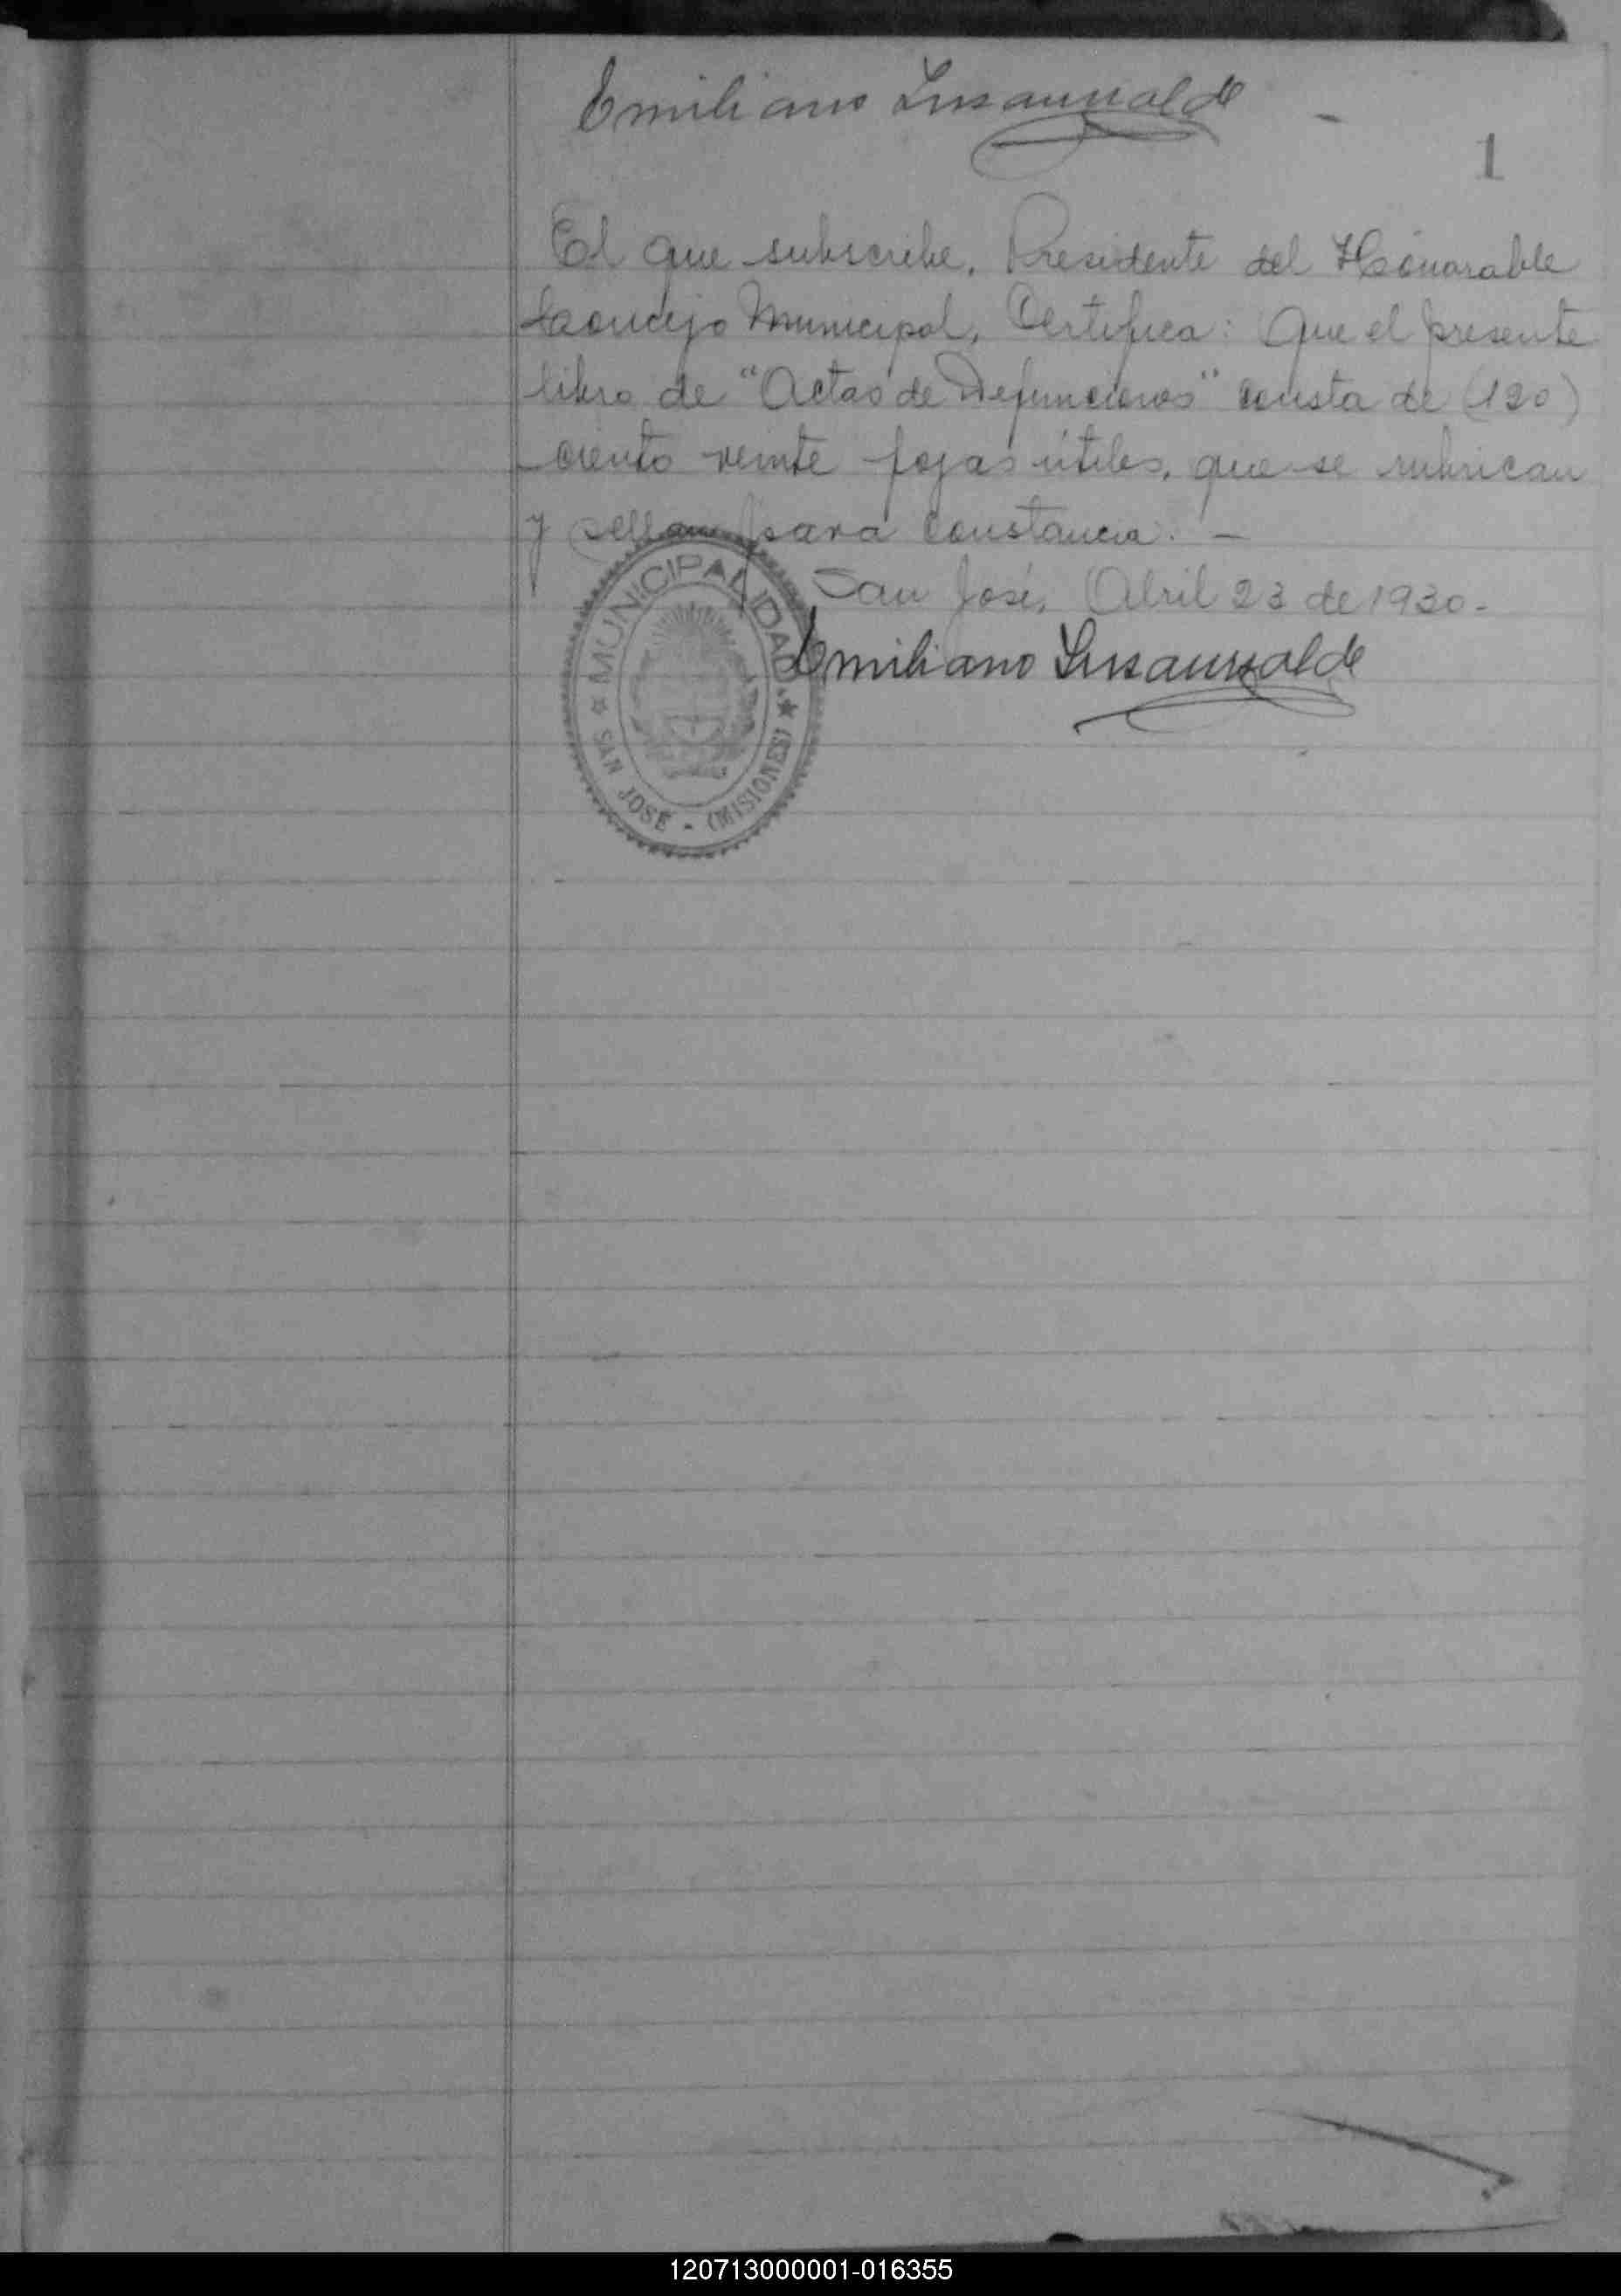 Emiliano
1
El que subscribe, Presidente del Honorable
Concejo Municipal, Certifica: Que el presente
libro de "Actas de Defunciones" consta de (120)
ciento veinte fojas útiles, que se rubrican
y sellan para constancia. -
San José, Abril 23 de 1930-
Emiliano
MUNICIPALIDAD
SAN JOSÉ - (MISIONES)
120713000001-016355